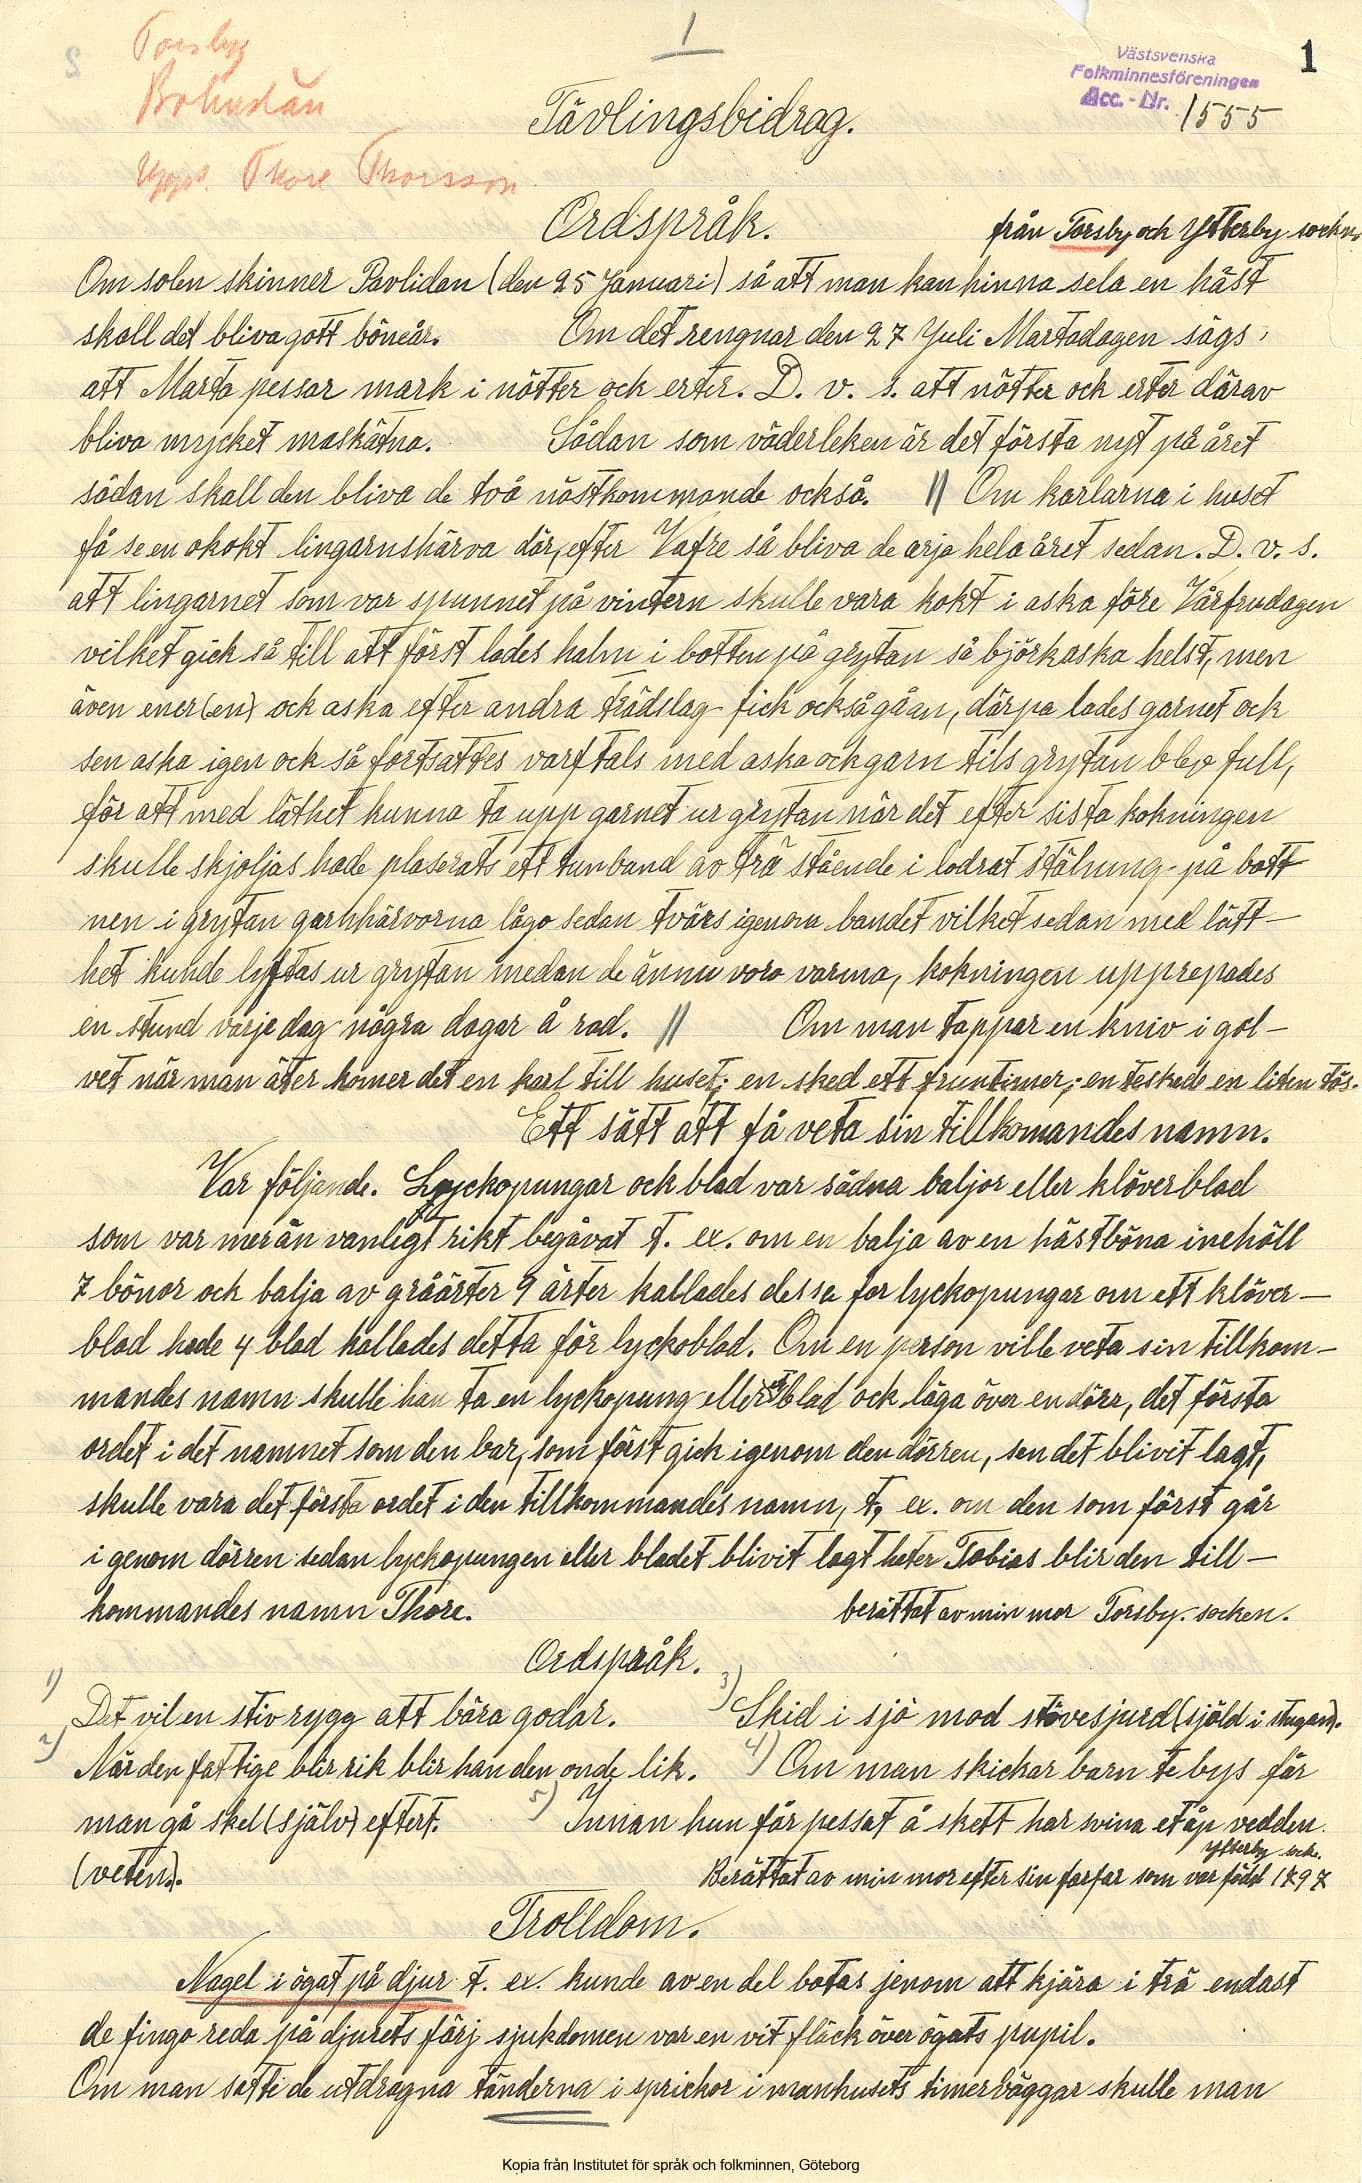 1
1
Torsby
Bohuslän
Västsvenska
Folkminnesföreningen
Acc. - Nr. 1555
Tävlingsbidrag.
Upps. Thore Thorsson
Ordspråk.
från Torsby och Ytterby sockn.
Om solen skinner Pavlidan (den 25 Januari) så att man kan hinna sela en häst
skall det bliva gott böneår. Om det rengnar den 27 Yuli Martadagen sägs,
att Marta pessar mark i nötter ock erter. D. v. s. att nötter ock erter därav
bliva mycket maskätna. Sådan som väderleken är det första nyt på året
sådan skall den bliva de två nästkommande också. // Om karlarna i huset
få se en okokt lingarnshärva där, efter Vafre så bliva de arja hela året sedan. D. v. s.
att lingarnet som var spunnet på vintern skulle vara kokt i aska före Vårfrudagen
vilket gick så till att först lades halm i botten på grytan så björkaska helst, men
även ener(en) ock aska efter andra trädslag fick också gå an, därpa lades garnet ock
sen aska igen ock så fortsattes varftals med aska ock garn tils grytan blev full,
för att med läthet kunna ta upp garnet ur grytan när det efter sista kokningen
skulle skjöljas hade plaserats ett tunband av trä stående i lodrät stälnung på bott
nen i grytan garnhärvorna lågo sedan tvärs igenom bandet vilket sedan med lätt—
het kunde lyftas ur grytan medan de ännu voro varma, kokningen upprepades
en stund varje dag några dagar å rad. // Om man tappar en kniv i gol—
vet när man äter komer det en karl till huset; en sked ett fruntimer; en teskede en liten tös.
Ett sätt att få veta sin tillkomandes namn.
Var följande. Lyckopungar ock blad var sådna baljor eller klöverblad
som var mer än vanligt rikt begåvat t. ex. om en balja av en hästböna inehöll
7 bönor ock balja av gråärter 9 ärter kallades dessa for lyckopungar om ett klöver—
blad hade 4 blad kallades detta för lyckoblad. Om en person ville veta sin tillkom—
mandes namn skulle han ta en lyckopung eller blad ock läga över en dörr, det första
ordet i det namnet som den bar, som först gick igenom den dörren, sen det blivit lagt,
skulle vara det första ordet i den tillkommandes namn, t. ex. om den som först går
i genom dörren sedan lyckopungen eller bladet blivit lagt heter Tobias blir den till—
kommandes namn Thore. berättat av min mor Torsby. socken.
Ordspråk.
1) Det vil en stiv rygg att bära godar. 3) Skid i sjö mod stövesjurd (sjöld i stugan).
2) När den fattige blir rik blir han den onde lik. 4) Om man skickar barn te bys får
man gå skel (själv) eftert. 5) Innan hun får pessat å skett har svina etåp vedden
(veten). Berättat av min mor efter sin farfar som var född 1797
Ytterby sock.
Trolldom.
Nagel i ögat på djur t. ex. kunde av en del botas jenom att kjära i trä endast
de fingo reda på djurets färj sjukdomen var en vit fläck över ögats pupil.
Om man satte de utdragna tänderna i sprickor i manhusets timerväggar skulle man
Kopia från Institutet för språk och folkminnen, Göteborg